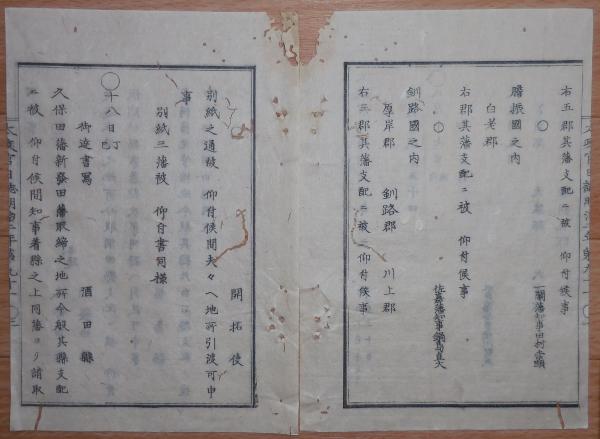 右五郡其藩支配ニ被　仰付候事
○　一關藩知事田村崇顯
膽振國之内
白老郡
右郡其藩支配ニ被　仰付候事
○　佐嘉藩知事鍋島直大
釧路國之内
厚岸郡　釧路郡　川上郡
右三郡其藩支配ニ被　仰付候事
開拓使
別紙之通被　仰付候間夫々ヘ地所引渡可申
事
別紙三藩被　仰付書同樣
○十八日丁巳
御達書寫　酒田縣
久保田藩新發田藩取締之地所今般其縣支配
ニ被　仰付候間知事着縣之上同藩ヨリ請取
太政官日誌明治二年第九十